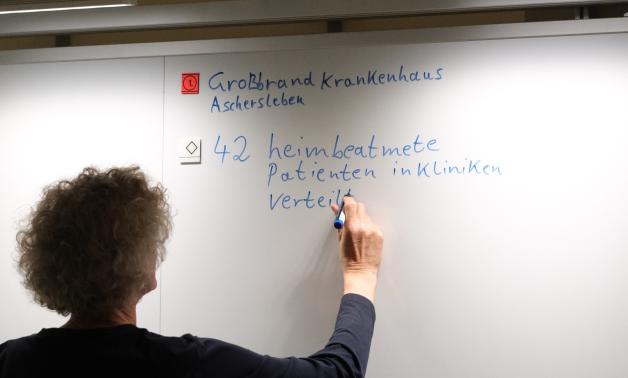 Großbrand Krankenhaus
Aschersleben
42 heimbeatmete
Patienten in Kliniken
verteilt